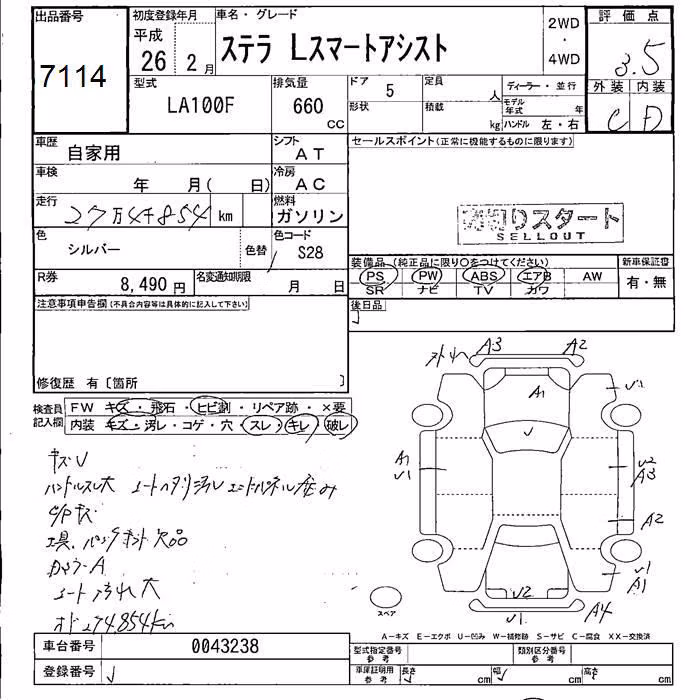 出品番号
7114
初度登録年月
平成
26 2月
車名・グレード
ステラ Lスマートアシスト
2WD
・
4WD
評価点
3.5
外装 内装
C D
型式
LA100F
排気量
660
CC
ドア 5
形状
定員 人
積載 kg
ディーラー・並行
モデル年式 年
ハンドル 左・右
車歴
自家用
シフト
AT
車検
年 月( 日)
冷房
AC
走行
27万4千854 km
燃料
ガソリン
色
シルバー
色替
色コード
S28
R券
8,490 円
名変通知期限
月 日
セールスポイント(正常に機能するものに限ります)
売切りスタート
SELLOUT
装備品 (純正品に限り〇をつけてください)
PS PW ABS エアB AW
SR ナビ TV カワ
新車保証書
有・無
後日品
注意事項申告欄(不具合内容等は具体的に記入して下さい)
修復歴 有〔箇所 〕
検査員
記入欄
FW キズ・飛石・ヒビ割・リペア跡・×要
内装 キズ・汚レ・コゲ・穴・スレ・キレ・破レ
キズU
ハンドルスレ大
C/Pキズ
工具、パンクキット欠品
シート汚れ大
オド274.854km
A3 A2
A1
U1
A1
U1
U2
A3
A2
U2
U1
A1
U1
A4
スペア
A-キズ E-エクボ U-凹み W-補修跡 S-サビ C-腐食 XX-交換済
車台番号
0043238
登録番号
型式指定番号
参考
類別区分番号
参考
車庫証明用
参考
長さ cm 幅 cm 高さ cm